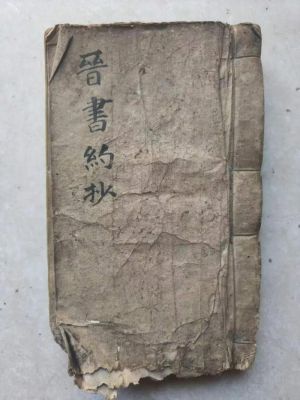 晉書約抄